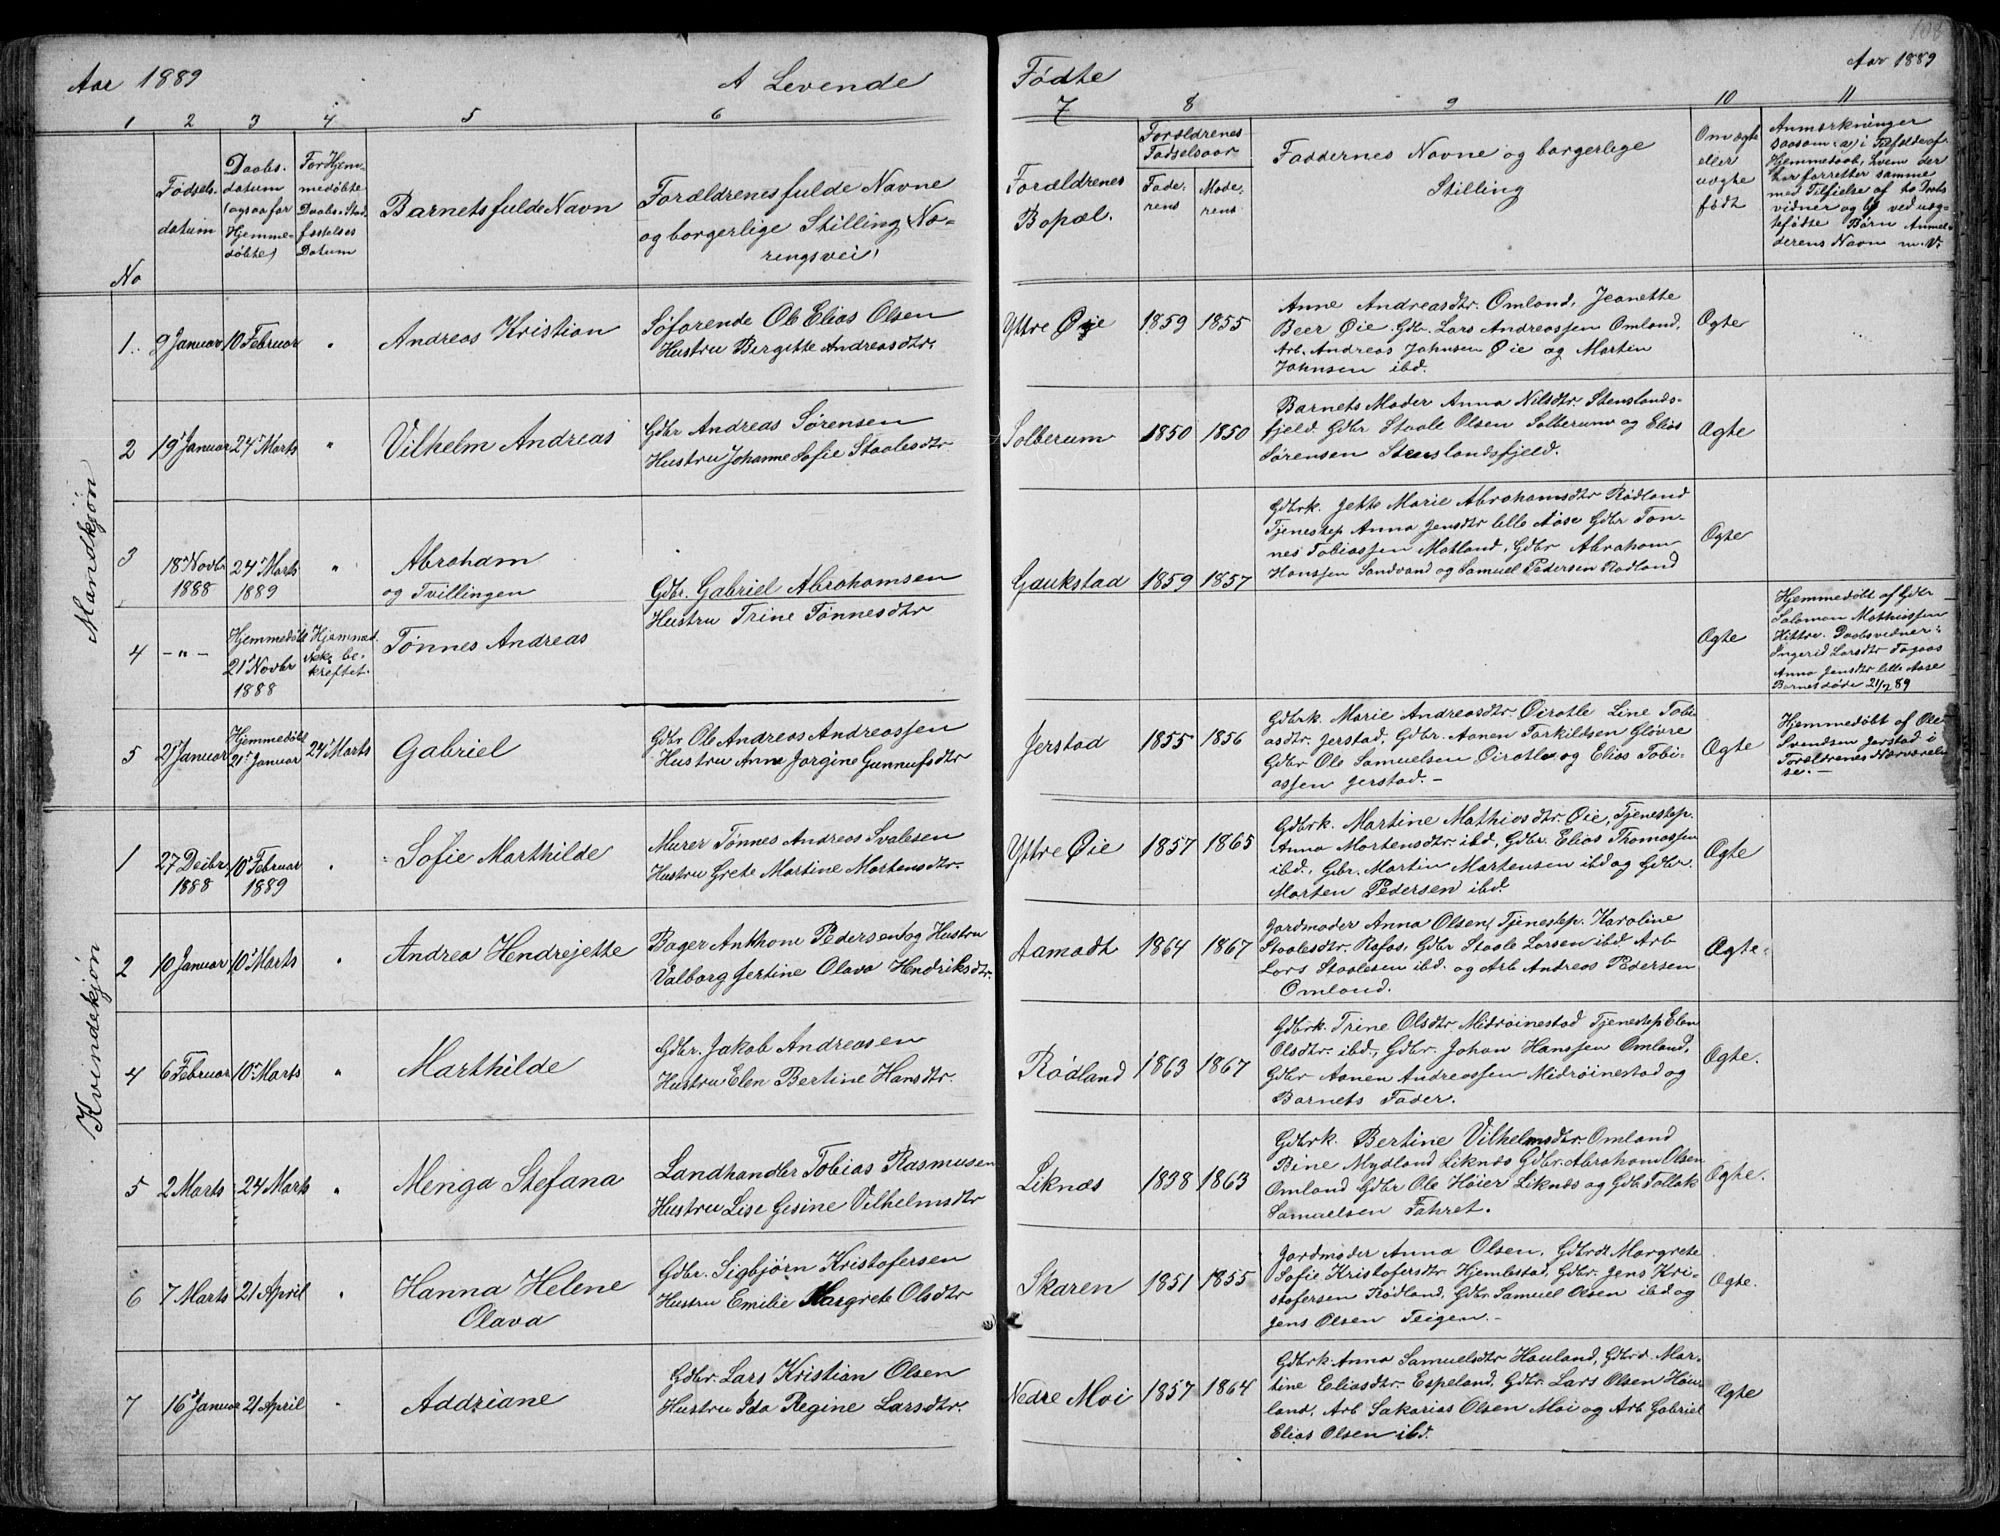 108
Aar 1889
A Levende
Fødte
Aar 1889
1 2 3 4 5 6 7 8 9 10 11
No
Fødsels-
datum
Daabs-
datum
(ogsaa for
Hjemme-
døbte)
For Hjem-
medøbte
Daabs. Stad
fæstelses
Datum
Barnets fulde Navn
Forældrenes fulde Navne
og borgerlige Stilling (Næ-
ringsvei)
Forældrenes
Bopæl.
Forældrenes
Fødselsaar
Fade-
rens
Mode-
rens
Faddernes Navne og borgerlige
Stilling
Om ægte
eller
uægte
født
Anmærkninger
saasom: a) i Tilfælde af
Hjemmedaab, hvem der
har forrettet samme
med Tilføielse af to Daabs
vidner og b) ved uæg-
tefødte Børn Anmel-
derens Navn m. V.
Mandkjøn
1. 9 Januar 10 Februar " Andreas Kristian
Søfarende Ole Elias Olsen
Hustru Birgitte Andreasdtr.
Yttre Øie 1859 1855
Anne Andreasdtr. Omland, Jeanette
Beer Øie. Gdbr. Lars Andreassen Omland,
Arb. Andreas Johnsen Øie og Martin
Johnsen ibd.
Ægte
2 19 Januar 24 Marts " Vilhelm Andreas
Gdbr Andreas Sørensen
Hustru Johanne Sofie Staalesdtr.
Solberum 1850 1850
Barnets Moder Anna Nilsdtr. Stenslands-
fjeld. Gdbr Staale Olsen Solberum og Elias
Sørensen Stenslandsfjeld.
Ægte
3 18 Novbr 24 Marts " Abraham
1888 1889 og Tvillingen
Gdbr. Gabriel Abrahamsen
Hustru Trine Tønnesdtr
Gaukstad 1859 1857
Gdbrk. Jette Marie Abrahamsdtr Rødland
Tjenestep Anna Jensdtr lille Aase Gdbr Tøn-
nes Tobiassen Matland, Gdbr Abraham
Hanssen Sandvand og Samuel Pedersen Rødland
Ægte
4 -"- Hjemmedøbt
21 Novbr
1888
Hjemmed.
ikke be-
kræftet.
Tønnes Andreas
Ægte
Hjemmedøbt af Gdbr
Salomon Mathiassen
Hittre. Daabsvidner:
Ingerid Larsdtr
Anna Jensdtr lille Aase
Barnet døde
5 21 Januar Hjemmedøbt
21 Januar 24 Marts Gabriel
Gdbr Ole Andreas Andreassen
Hustru Anne Jørgine Gunnufsdtr
Jerstad 1855 1856
Gdbrk. Marie Andreasdtr. Øirotle Line Tobi-
asdtr. Jerstad, Gdbr. Aanen Tarkildsen Gløvre
Gdbr Ole Samuelsen Øirotle og Elias Tobi-
assen Jerstad. -
Ægte
Hjemmedøbt af Ole
Svendsen Jerstad i
Forældrenes Nærværel-
se. -
Kvindekjøn
1 27 Decbr 10 Februar " Sofie Marthilde
1888 1889
Murer Tønnes Andreas Svalesen
Hustru Grete Martine Mortensdtr.
Yttre Øie 1857 1865
Gdbrk. Martine Mathiasdtr. Øie, Tjenestep.
Anna Mortensdtr. ibd, Gdbr. Elias Thomassen
ibd., Gbr. Martin Martensen ibd og Gdbr.
Morten Pedersen ibd.
Ægte
2 10 Januar 10 Marts " Andrea Hendrejette
Bager Anthoni Pedersen og Hustru
Valborg Jertine Olava Hendriksdtr.
Aamodt 1864 1867
Jordmoder Anna Olsen, Tjenestep. Karoline
Staalesdtr. Rafos, Gdbr Staale Larsen ibd Arb
Lars Staalesen ibd. og Arb Andreas Pedersen
Omland.
Ægte
4 6 Februar 10 Marts " Marthilde
Gdbr. Jakob Andreasen
Hustru Elen Bertine Hansdtr.
Rødland 1863 1867
Gdbrk. Trine Olsdtr Midrøinestad Tjenestep Elen
Olsdtr. ibd., Gdbr. Johan Hanssen Omland,
Gdbr Aanen Andreassen Midrøinestad og
Barnets Fader.
Ægte.
5 2 Marts 24 Marts " Menga Stefana
Landhandler Tobias Rasmusen
Hustru Lise Gesine Vilhelmsdtr
Liknæs 1838 1863
Gdbrk. Bertine Vilhelmsdtr. Omland
Bine Mydland Liknæs Gdbr. Abraham Olsen
Omland, Gdbr Ole Høier Liknæs og Gdbr. Sollak
Samuelsen Fahret.
Ægte.
6 7 Marts 21 April " Hanna Helene
Olava
Gdbr. Sigbjørn Kristofersen
Hustru Emilie Margrete Olsdtr
Skaren 1851 1855
Jordmoder Anna Olsen, Gdbrdt Margrete
Sofie Kristofersdtr Hjemlestad, Gdbr. Jens Kri-
stofersen Rødland, Gdbr Samuel Olsen ibd og
Jens Olsen Teigen. -
Ægte.
7 16 Januar 21 April " Addriane
Gdbr. Lars Kristian Olsen
Hustru Ida Regine Larsdtr.
Nedre Moi 1857 1864
Gdbrk. Anna Samuelsdtr Houland, Gdbrd. Mar-
tine Eliasdtr. Espeland, Gdbr. Lars Olsen Hou-
land, Arb Sakarias Olsen Moi og Arb Gabriel
Elias Olsen ibd.
Ægte